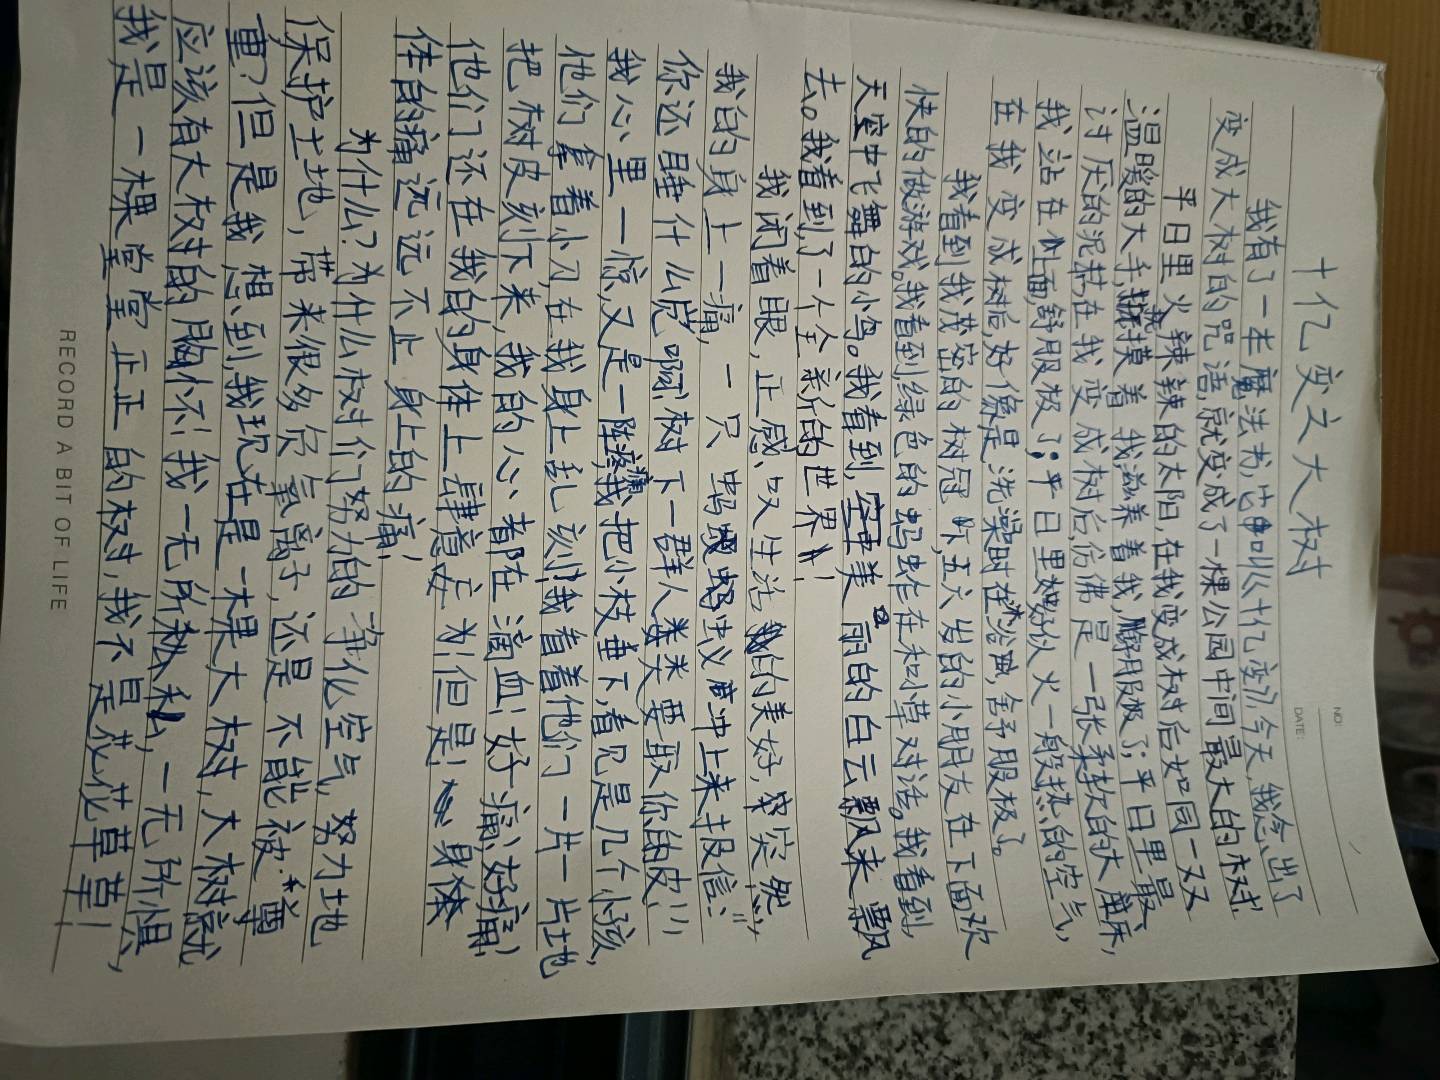 NO:
DATE:
十亿变之大树
我有了一本魔法书,它叫《十亿变》,今天,我念出了
变成大树的咒语,就变成了一棵公园中间最大的树.
平日里火辣辣的太阳,在我变成树后如同一双
温暖的大手,抚摸着我,滋养着我,舒服极了;平日里最
讨厌的泥巴在我变成树后,仿佛是一张柔软的大床,
我站在上面,舒服极了;平日里如火一般热的空气,
在我变成树后,好像是洗澡时在沐浴,舍舒服极了。
我看到我茂密的树冠下,五六岁的小朋友在下面欢
快的做游戏。我看到,绿色的蚂蚱在和小草对话。我看到,
天空中飞舞的小鸟。我看到,空中美丽的白云飘来飘
去。我看到了一个全新的世界!
我闭着眼,正感叹生活的美好,突然,
我的身上一痛,一只蚂蚁冲上来报信:"
你还睡什么呢啊,树下一群人类要取你的皮!!!
我心里一惊,又是一阵疼痛,我把小枝垂下,看见是几个小孩,
他们拿着小刀,在我身上乱刻!我看着他们一片一片地
把树皮刻下来,我的心都在滴血!好痛!好痛!
他们还在我的身体上肆意妄为!但是!身体
体的痛远远不止身上的痛!
为什么?为什么树们努力的净化空气,努力地
保护土地,带来很多负氧离子,还是不能被尊
重?但是我想到,我现在是一棵大树,大树就
应该有大树的胸怀!我一无所私,一无所惧,
我是一棵堂堂正正的树,我不是花花草草!
RECORD A BIT OF LIFE